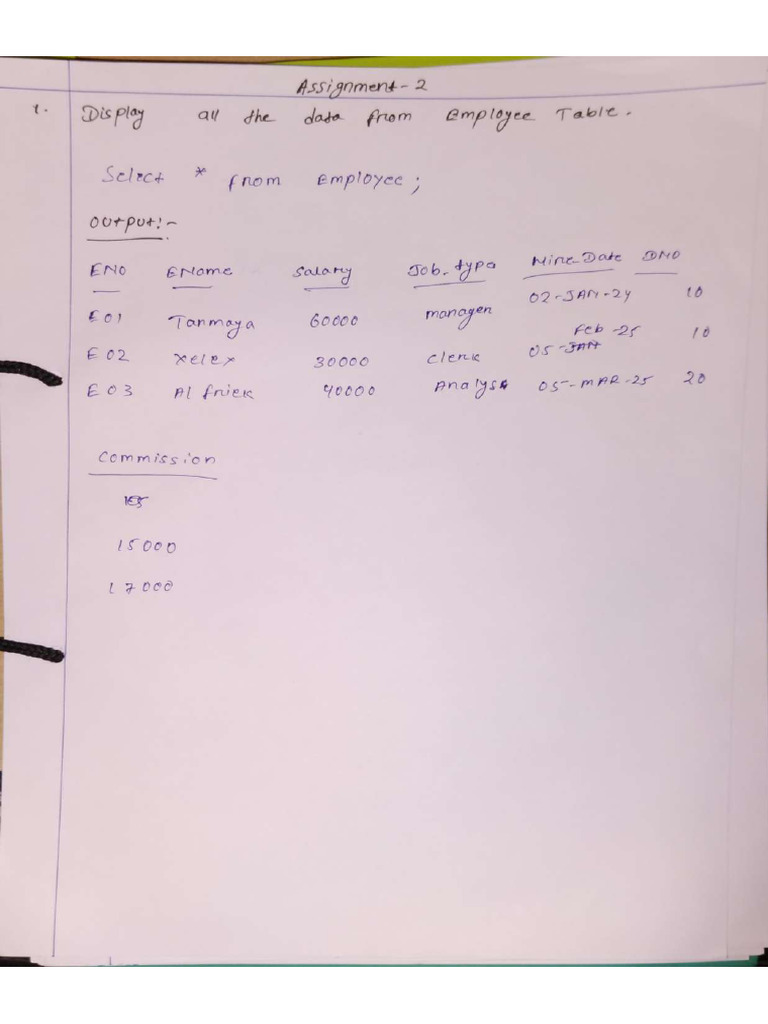 Assignment - 2
1. Display all the data from Employee Table.
Select * from Employee;
Output:-
ENO EName Salary Job-type Hire-Date DNO
E01 Tanmaya 60000 manager 02-JAN-24 10
E02 xelex 30000 clerk 05-Feb-25 10
E03 Alfriek 40000 Analyst 05-MAR-25 20
Commission
15000
17000